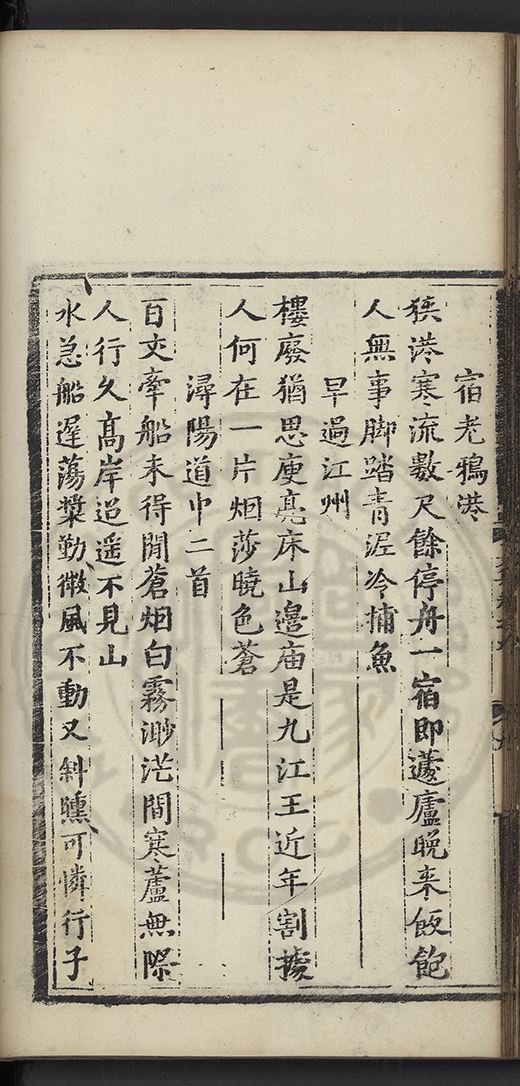 宿老鴉港
狹港寒流數尺餘停舟一宿即蘧廬晚来飯飽
人無事脚踏青泥冷捕魚
早過江州
樓廢猶思庾亮床山邉庙是九江王近年割據
人何在一片烟莎曉色蒼
潯陽道中二首
百丈牽船未得閒蒼烟白霧渺茫間寒蘆無際
人行久髙岸迢遥不見山
水急船遲蕩槳勤微風不動又斜曛可憐行子